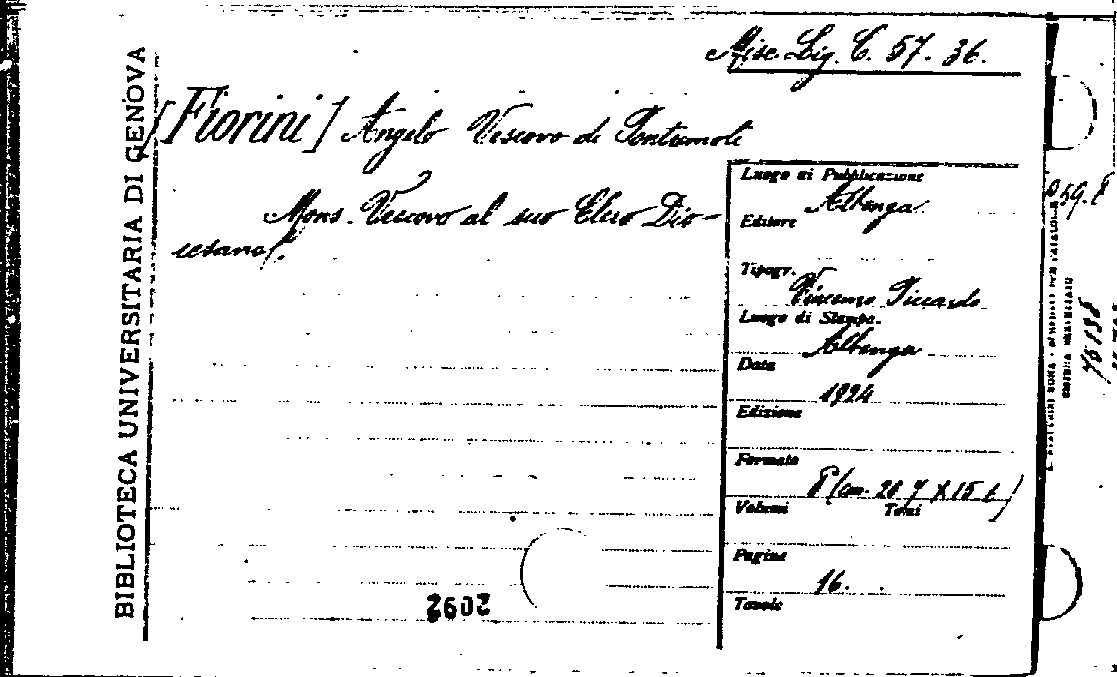 Misc. Lig. C. 57. 36.
[Fiorini] Angelo Vescovo di Pontremoli
Mons. Vescovo al suo Clero Dio-
cesano.
BIBLIOTECA UNIVERSITARIA DI GENOVA
Luogo di Pubblicazione
Albenga
Editore
Tipogr.
Vincenzo Piccardo
Luogo di Stampa.
Albenga
Data
1924
Edizione
Formato
8° (cm.
Volumi Tomi
Pagine
16.
Tavole
2602